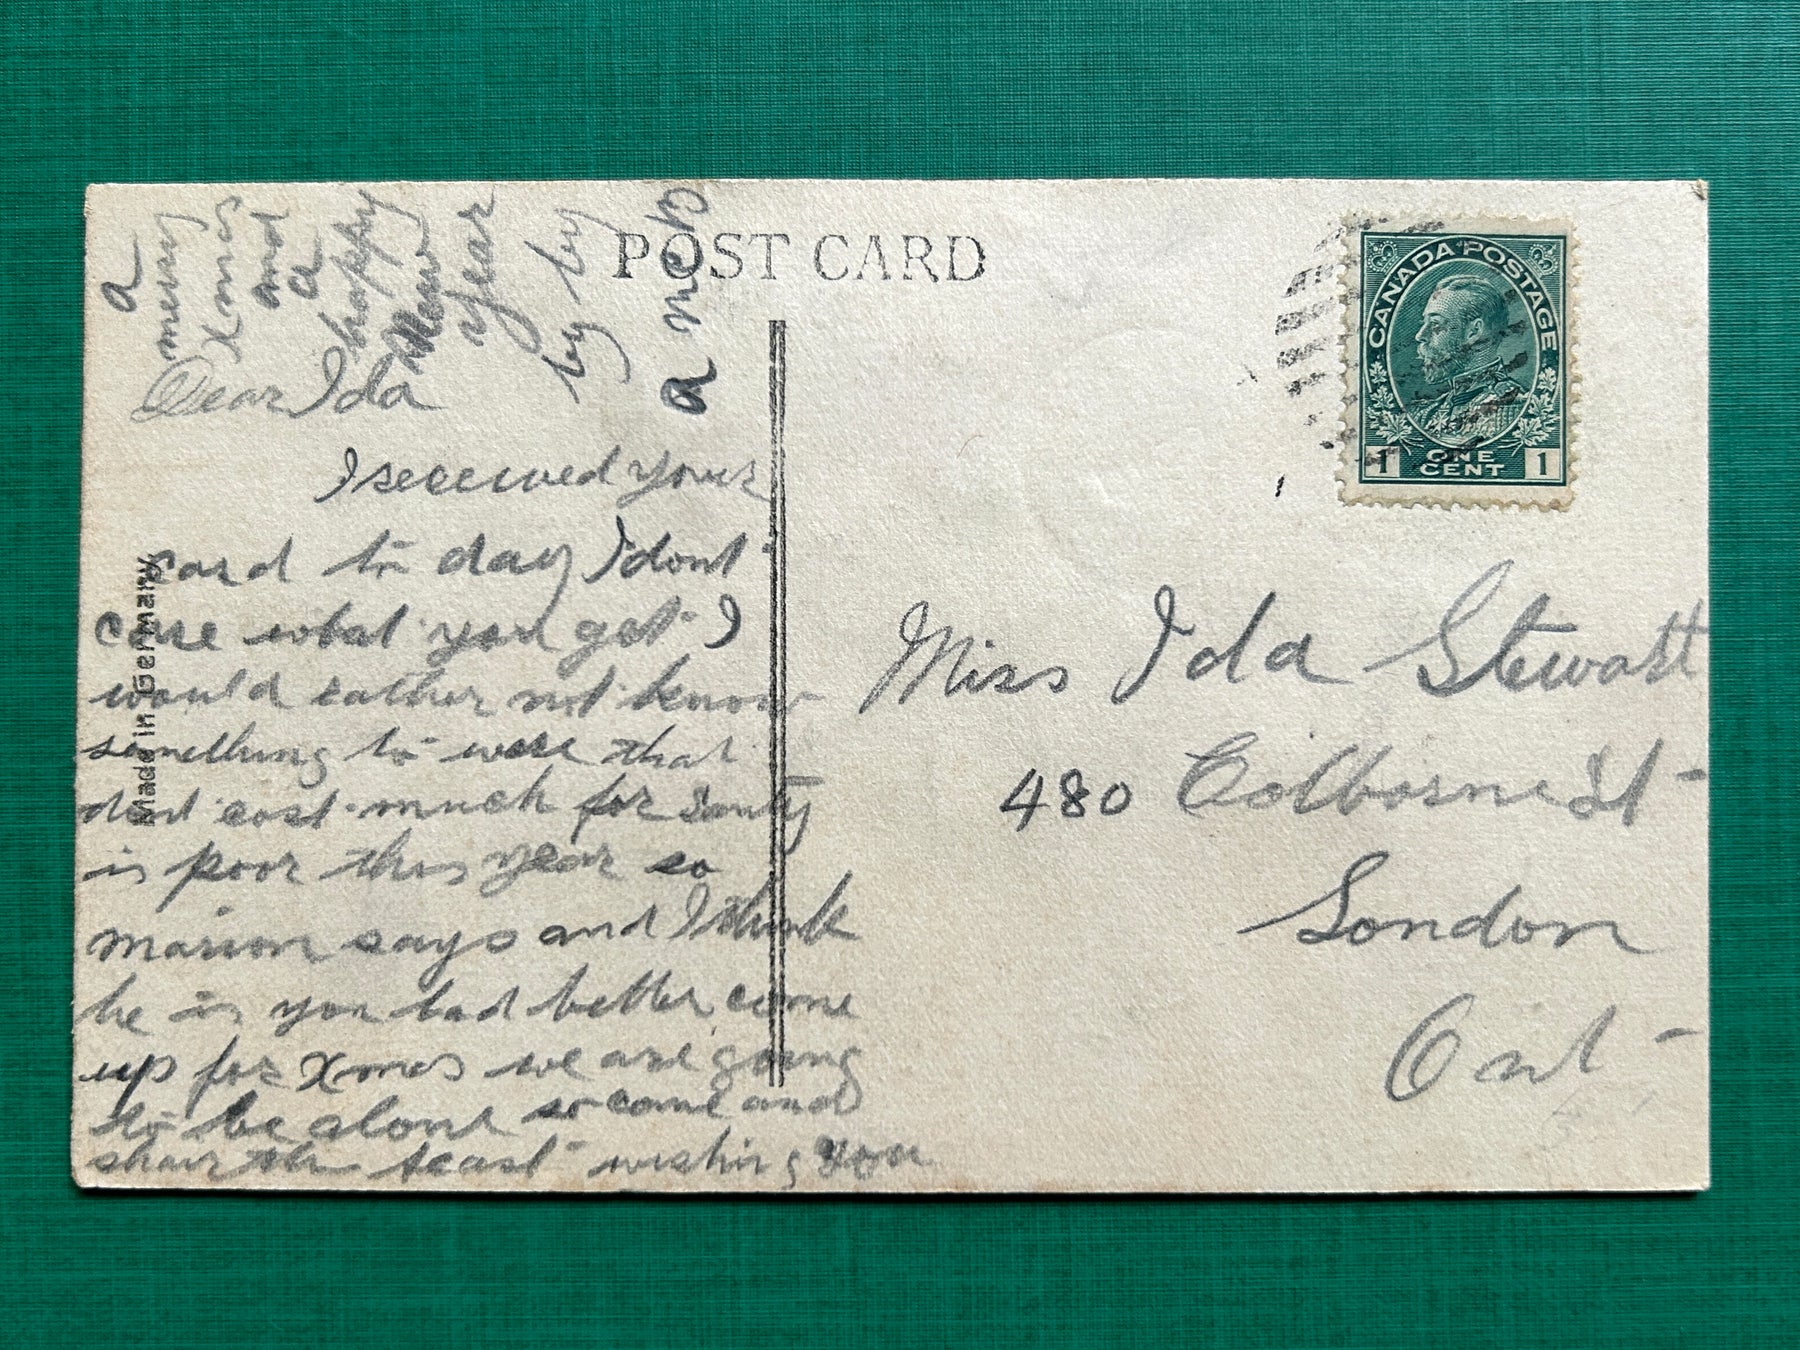 POST CARD
CANADA POSTAGE
1 ONE CENT 1
Made in Germany
Dear Ida
I received your
card to day I dont
care what you get I
would rather not know
something to were that
dont cost much for Santy
is poor this year so
marion says and I think
he is you had better come
up for Xmas we are going
to be alone so come and
shair the feast wishing you
a
merry
Xmas
and
a
happy
New
year
by by
a McB
Miss Ida Stewart
480 Colborne St
London
Ont